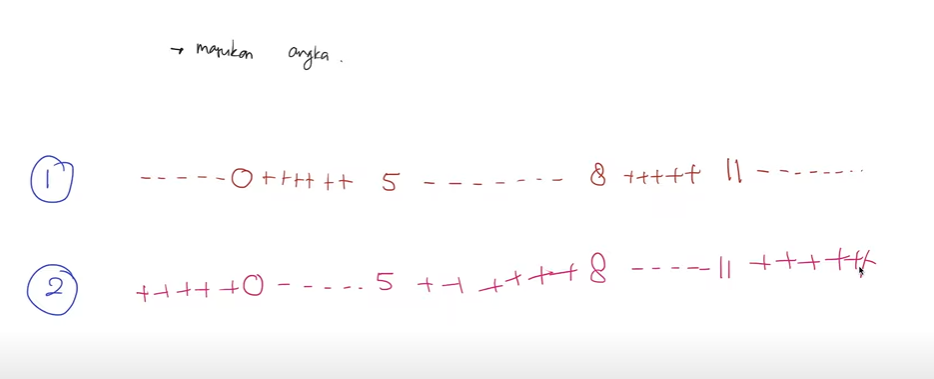 → masukan angka.
1 -----0++++++ 5 -------- 8 +++++ 11 -------
2 +++++0------5 ++++++8 -----11 ++++++